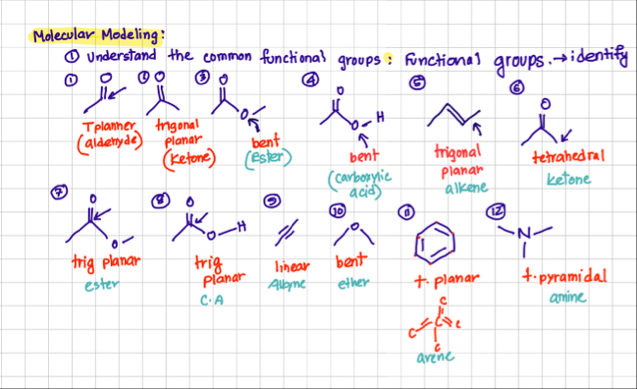 Molecular Modeling:
① Understand the common functional groups: Functional groups. → identify
① ② ③ ④ ⑤ ⑥
O O O O O
O O-H
T planner trigonal bent bent trigonal tetrahedral
(aldehyde) planar (Ester) (carboxylic planar ketone
(ketone) acid) alkene
⑦ ⑧ ⑨ ⑩ 11 12
O O O N
O O-H
trig planar trig linear bent t. planar t. pyramidal
ester planar Alkyne ether amine
C.A
C
C C C
C
arene